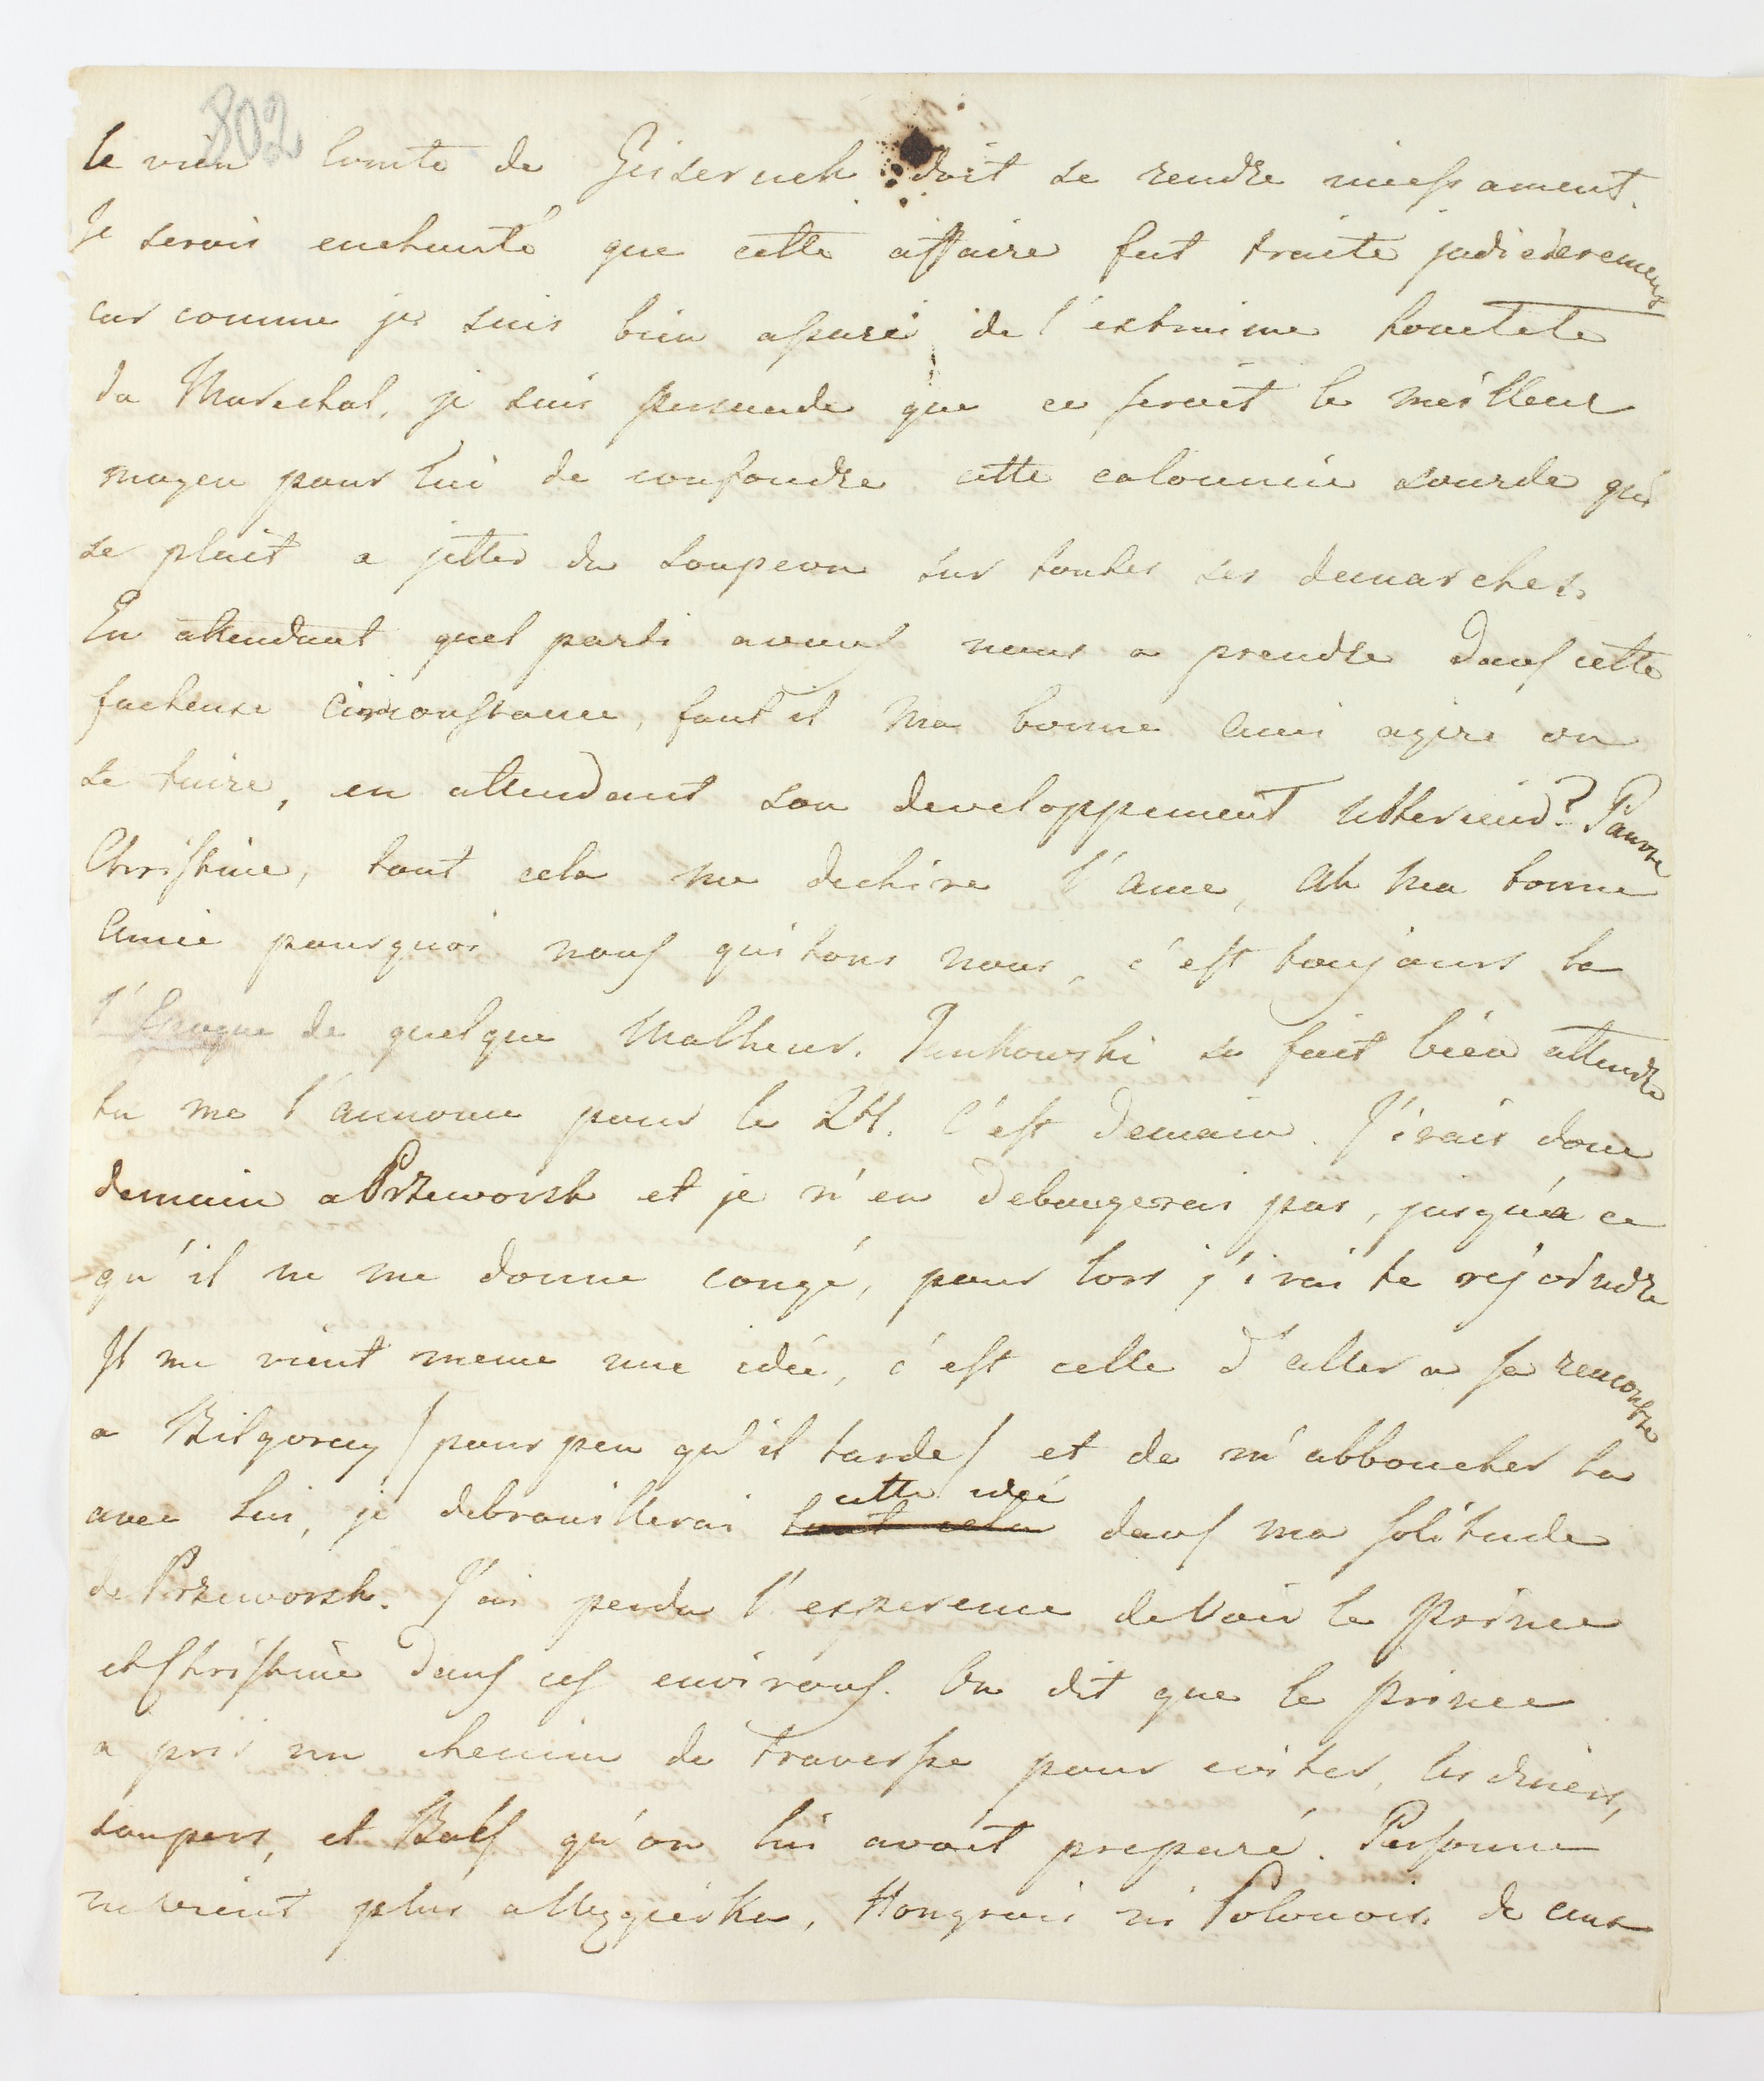 802
le vieu Comte de Geisernck doit se rendre niessament.
Je serois enchanté que cette affaire fut traite judicierement
car comme je suis bien assuré de l'extreime honetete
du Marechal, je suis persuade que ce seroit le meilleur
moyen pour lui de confondre cette calomnie sourde qui
se plait a jetter du soupcon sur toutes ses demarches.
En attendant quel parti avont nous a prendre dans cette
facheuse Circonstance, faut il Ma bonne Amie agire ou
se taire, en attendant son developpement ulterieur? Pauvre
Christine, tout cela me dechire l'ame, Ah Ma bonne
Amie pourquoi nous quitons nous, c'est toujours la
l'Epoque de quelque Malheur. Junkowski se fait bien attendre
tu me l'annonce pour le 24. c'est demain. J'irais donc
demain a Przeworsk et je n'en debougerai pas, jusqu'a ce
qu'il ne me donne congé, pour lors j'irai te rejoindre
Il me vient meme une idée, c'est celle d'aller a sa rencontre
a Bilgoray / pour peu qu'il tarde / et de m'abboucher la
avec lui, je debrouillerai tout cela cette idée dans ma solitude
de Przeworsk. J'ai perdu l'esperence de Voir le Prince
et Christine dans ces environs. On dit que le prince
a pris un chemin de traverse pour eviter, les diners,
soupers, et Bals qu'on lui avoit preparé. Personne
ne vient plus a Uzgieska, Hongrois ni Polonois. de ceux